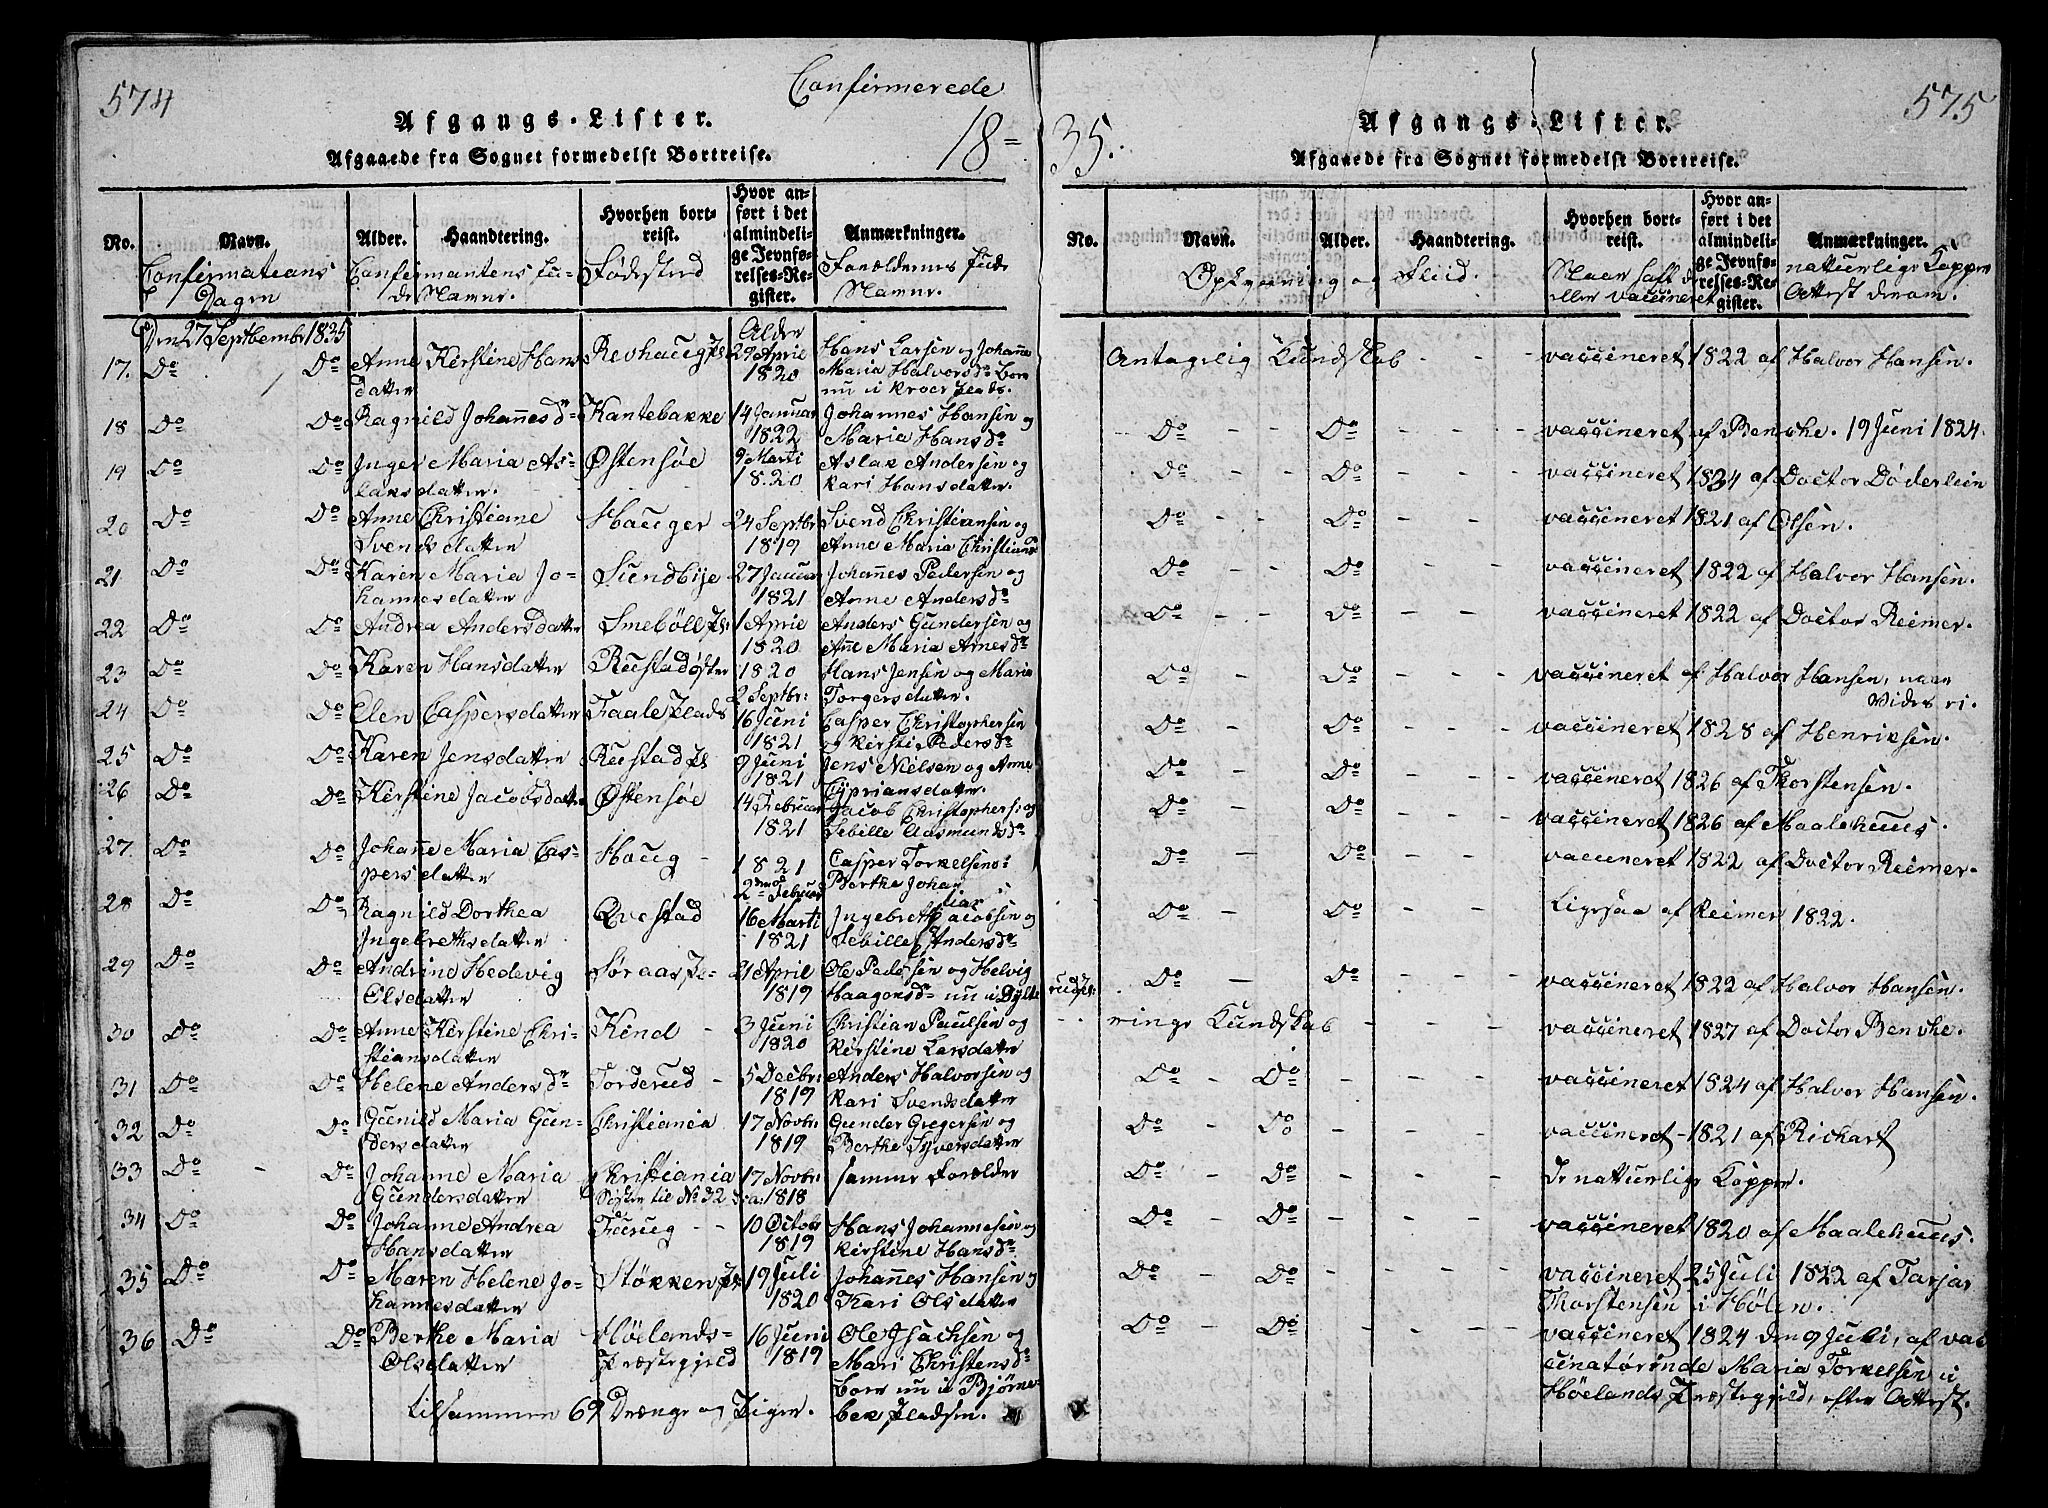 574
Confirmerede
Afgangs-Lister.
18=
Afgaaede fra Sognet formedelst Bortreise.
No. Navn. Alder. Haandtering. Hvorhen bortreist. Hvor anført i det almindelige Jevnførelses-Register. Anmærkninger.
Confirmations Dagen
Confirmantens Fulde Navne. Fødested Forældernes Fulde Navne.
Den 27 Septhember 1835 Alder
17. Do Do Anne Kirstine Hansdatter Revhaug Pl. 29 April 1820 Hans Larsen og Johanne Maria Halvorsd= boer nu i Kroer Plads.
18 Do Do Ragnild Johannesd= Kantebakke 14 Januar 1822 Johannes Hansen og Maria Hansd=
19 Do Do Inger Maria Aslaksdatter. Østensøe 9 Marti 1820 Aslak Andersen og Kari Hansdatter.
20 Do Do Anne Christiane Svendsdatter Hauger 24 Septbr: 1819 Svend Christiansen og Anne Maria Christiansd
21 Do Do Karen Maria Johannesdatter Sundbye 27 Januar 1821 Johannes Pedersen og Anne Andersd=
22 Do Do Andrea Andersdatter Smebøll Pl: 1 April 1820 Anders Gundersen og Anne Maria Arnesd=
23 Do Do Karen Hansdatter Rustad Øster 1820 2 Septbr: Hans Jensen og Maria Torgersdatter.
24 Do Do Elen Caspersdatter Faale Plads 16 Juni 1821 Casper Christophersen og Kirsti Pedersd=
25 Do Do Karen Jensdatter Rustad Pl 9 Juni 1821 Jens Nielsen og Anne Cipriansdatter.
26 Do Do Kirstine Jacobsdatter Østensøe 14 Februar 1821 Jacob Christophers: og Sebille Aasmundsd=
27. Do Do Johanne Maria Caspersdatter Haug - 1821 2den Februar Casper Torkelsen o: Berthe Johan
28 Do Do Ragnild Dorthea Ingebrethsdatter Qvestad 16 Marti 1821 Ingebreth Jacobsen og Sebille Andersd=
29 Do Do Andrine Hedevig Olsdatter Søraas Pl- 21 April 1819 Ole Pedersen og Helvig Haagensd= nu i Dylterud Pl:
30 Do Do Anne Kirstine Christiansdatter Kend - 3 Juni 1820 Christian Paulsen og Kirstine Larsdatter
31 Do Do Helene Andersd= Torderud - 5 Decbr: 1819 Anders Halvorsen og Kari Svendsdatter
32 Do Do Gunild Maria Gundersdatter Christiania 17 Novbr: 1819 Gunder Gregersen og Berthe Syversdatter
33 Do - Do Johanne Maria Gundersdatter Christiania Søster til No 32 17 Novbr: 1818 samme Forælder
34 Do Do Johanne Andrea Hansdatter Furug - - 10 Octobr 1819 Hans Johannesen og Kirstine Hansd=
35 Do Do Maren Helene Johannesdatter Støkken Pl 19 Juli 1820 Johannes Hansen og Kari Olsdatter
36 Do Do Berthe Maria Olsdatter Høelands-Præstegjeld 16 Juni 1819 Ole Isachsen og Mari Christensd= boer nu i Bjørnebek Pladsen.
tilsammen 69 Drænge og Piger.
575
35.
Afgangs-Lister.
Afgaaede fra Sognet formedelst Bortreise.
No. Navn. Alder. Haandtering. Hvorhen bortreist. Hvor anført i det almindelige Jevnførelses-Register. Anmærkninger.
Opførsel og Fliid. Naar haft de eller vaccineret naturlige Kopper Attest derom.
Antagelig Kundskab - - - vaccineret 1822 af Halvor Hansen.
Do - Do - - - vaccineret af Benche. 19 Juni 1824.
Do - - Do - - - vaccineret 1834 af Doctor Døderlein
Do - - Do - - - vaccineret 1821 af Olsen.
Do - - Do - - - vaccineret 1822 af Halvor Hansen.
Do - - Do - - - vaccineret 1822 af Doctor Reimer.
Do - - Do - - - vaccineret af Halvor Hansen, naar vides ei.
Do - - Do - - - vaccineret 1828 af Henriksen.
Do - Do - - - vaccineret 1826 af Thorstensen.
Do - Do - - - vaccineret 1826 af Maalehuus.
Do - Do - - - vaccineret 1822 af Doctor Reimer.
Do - Do - - - Ligesaa af Reimer 1822.
Do - Do - - - vaccineret 1822 af Halvor Hansen.
ringe Kundskab - - - vaccineret 1827 af Doctor Benche.
Do - Do - - - - vaccineret 1824 af Halvor Hansen.
Do - Do - - - - vaccineret 1821 af Richart
Do - Do - - - - De naturlige Kopper.
Do - Do - - - - vaccineret 1820 af Maalehuus.
Do - Do - - - - vaccineret 25 Juli 1822 af Tarjar Thorstensen i Hølen.
Do - Do - - - - vaccineret 1824 den 9 Juli, af vaccinatørinde Maria Torkelsen i Høelands Præstegjeld, efter Attest.